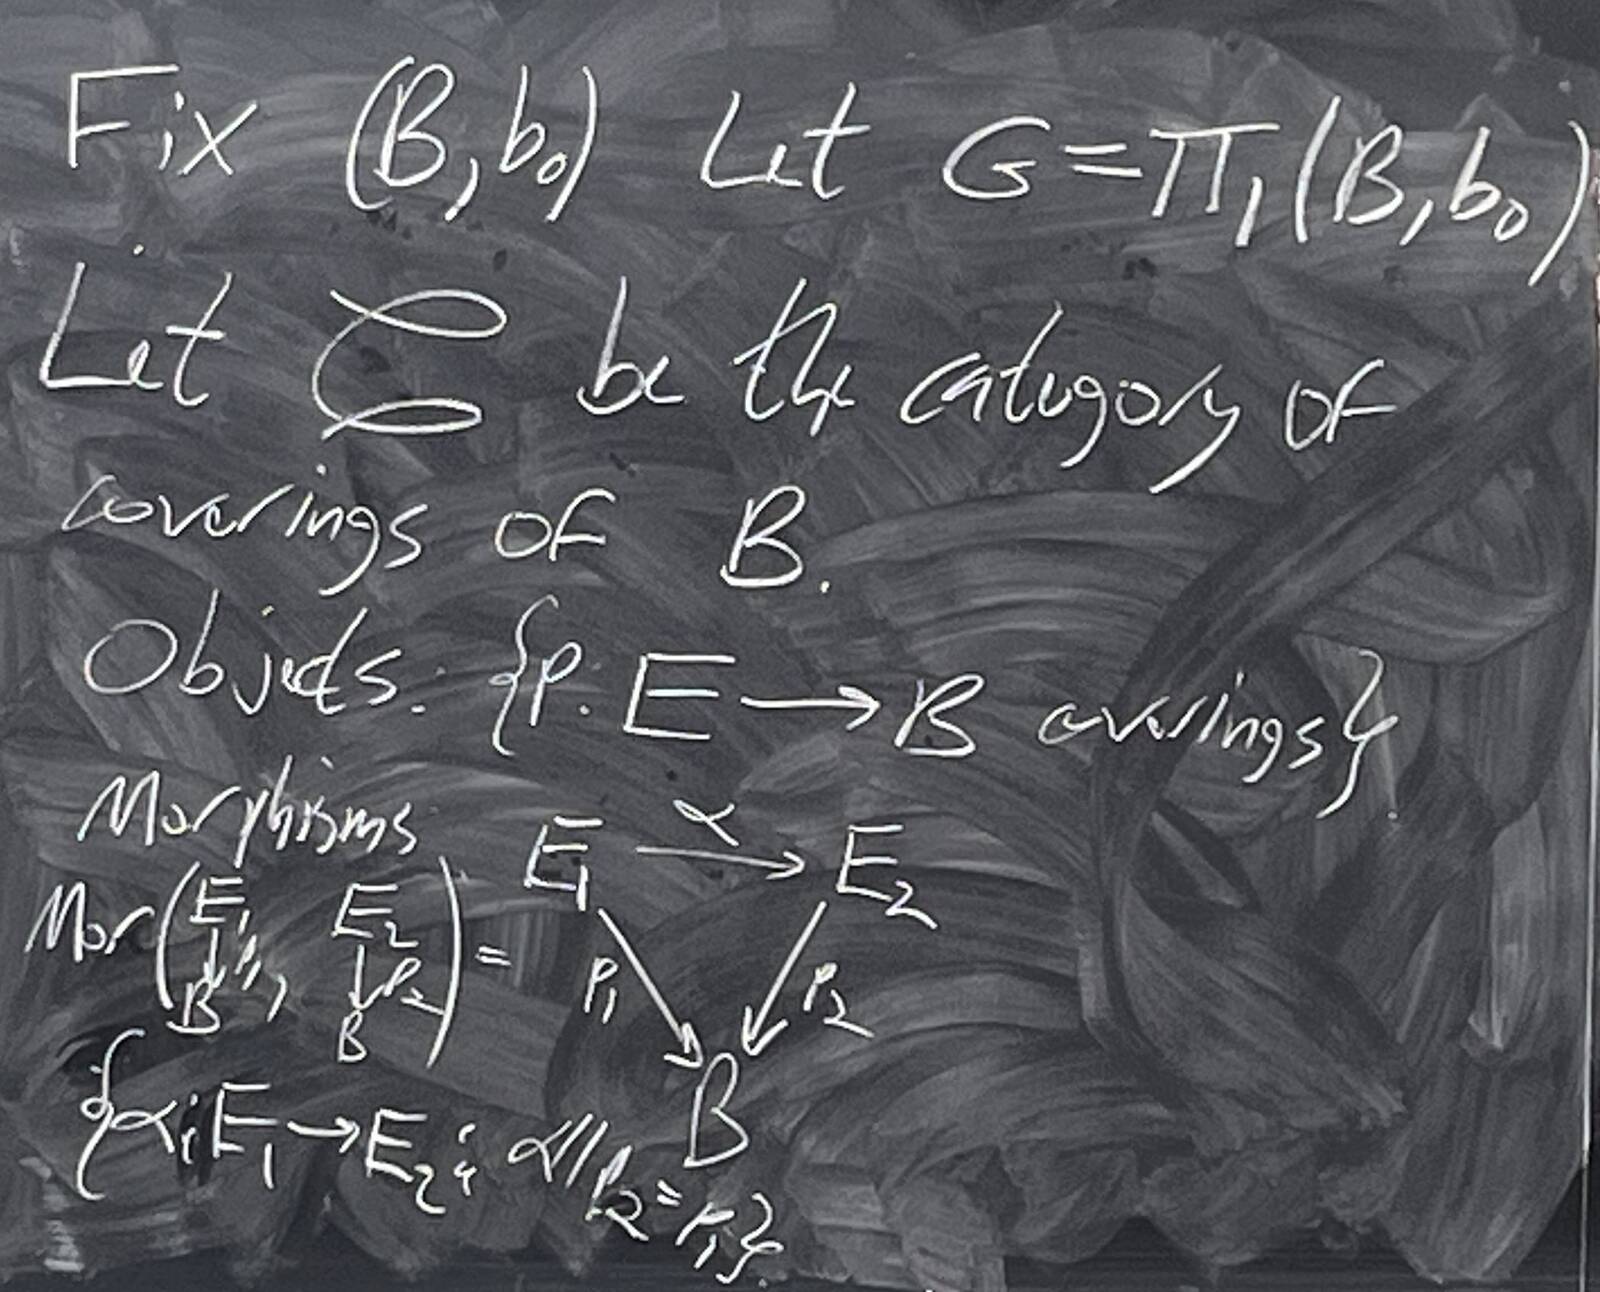 Fix (B, b₀) Let G = π₁(B, b₀)
Let C be the category of
coverings of B.
Objects: {p: E → B coverings}.
Morphisms
E₁ →α E₂
p₁ p₂
B
Mor(E₁ ↓p₁ B, E₂ ↓p₂ B) =
{α: E₁ → E₂: α//p₂ = p₁}.